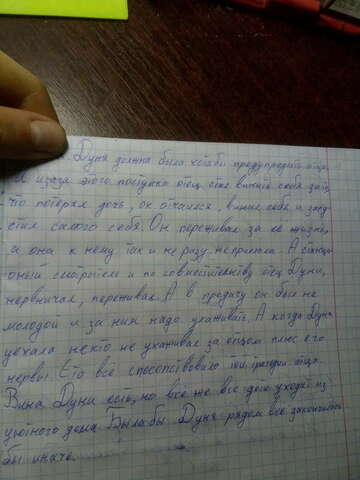 Дуня должна была хотябы предупредить отца.
И изаза этого поступка отец стал винить себя за то,
что потерял дочь, он отчаился, винил себя и запу-
стил самого себя. Он переживал за её жизнь,
а она к нему так и не разу не приехала. А станци
оный смотритель и по совместительству отец Дуни,
нервничал, переживал. А в придачу он был не
молодой и за ним надо ухаживать. А когда Дуня
уехала некто не ухаживал за отцом плюс его
нервы. Ето всё способствовало той трагедии отца.
Вина Дуни есть, но всё же все дети уходят из
уютного дома. Былабы Дуня рядом всё закончилось
бы иначе.